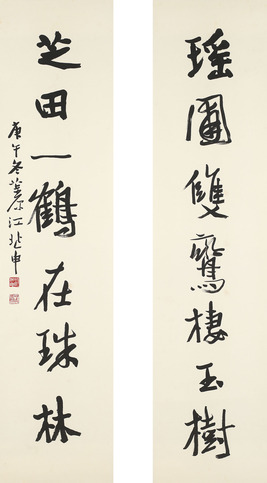 瑤圃雙鸞棲玉樹
芝田一鶴在珠林
庚午冬茮原江兆申